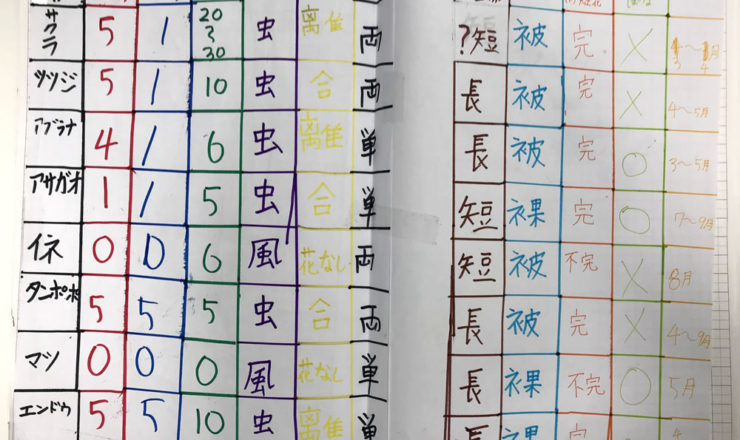 サクラ 5 1 20 〜 30 虫 離 両 ?短 被 完 × 3〜4月
ツツジ 5 1 10 虫 合 両 長 被 完 × 4〜5月
アブラナ 4 1 6 虫 離 単 長 被 完 ○ 3〜5月
アサガオ 1 1 5 虫 合 単 短 裸 完 ○ 7〜9月
イネ 0 0 6 風 花なし 両 短 被 不完 × 8月
タンポポ 5 5 5 虫 合 両 長 被 完 × 4〜9月
マツ 0 0 0 風 花なし 単 長 裸 不完 ○ 5月
エンドウ 5 5 10 虫 離 単 裸 完